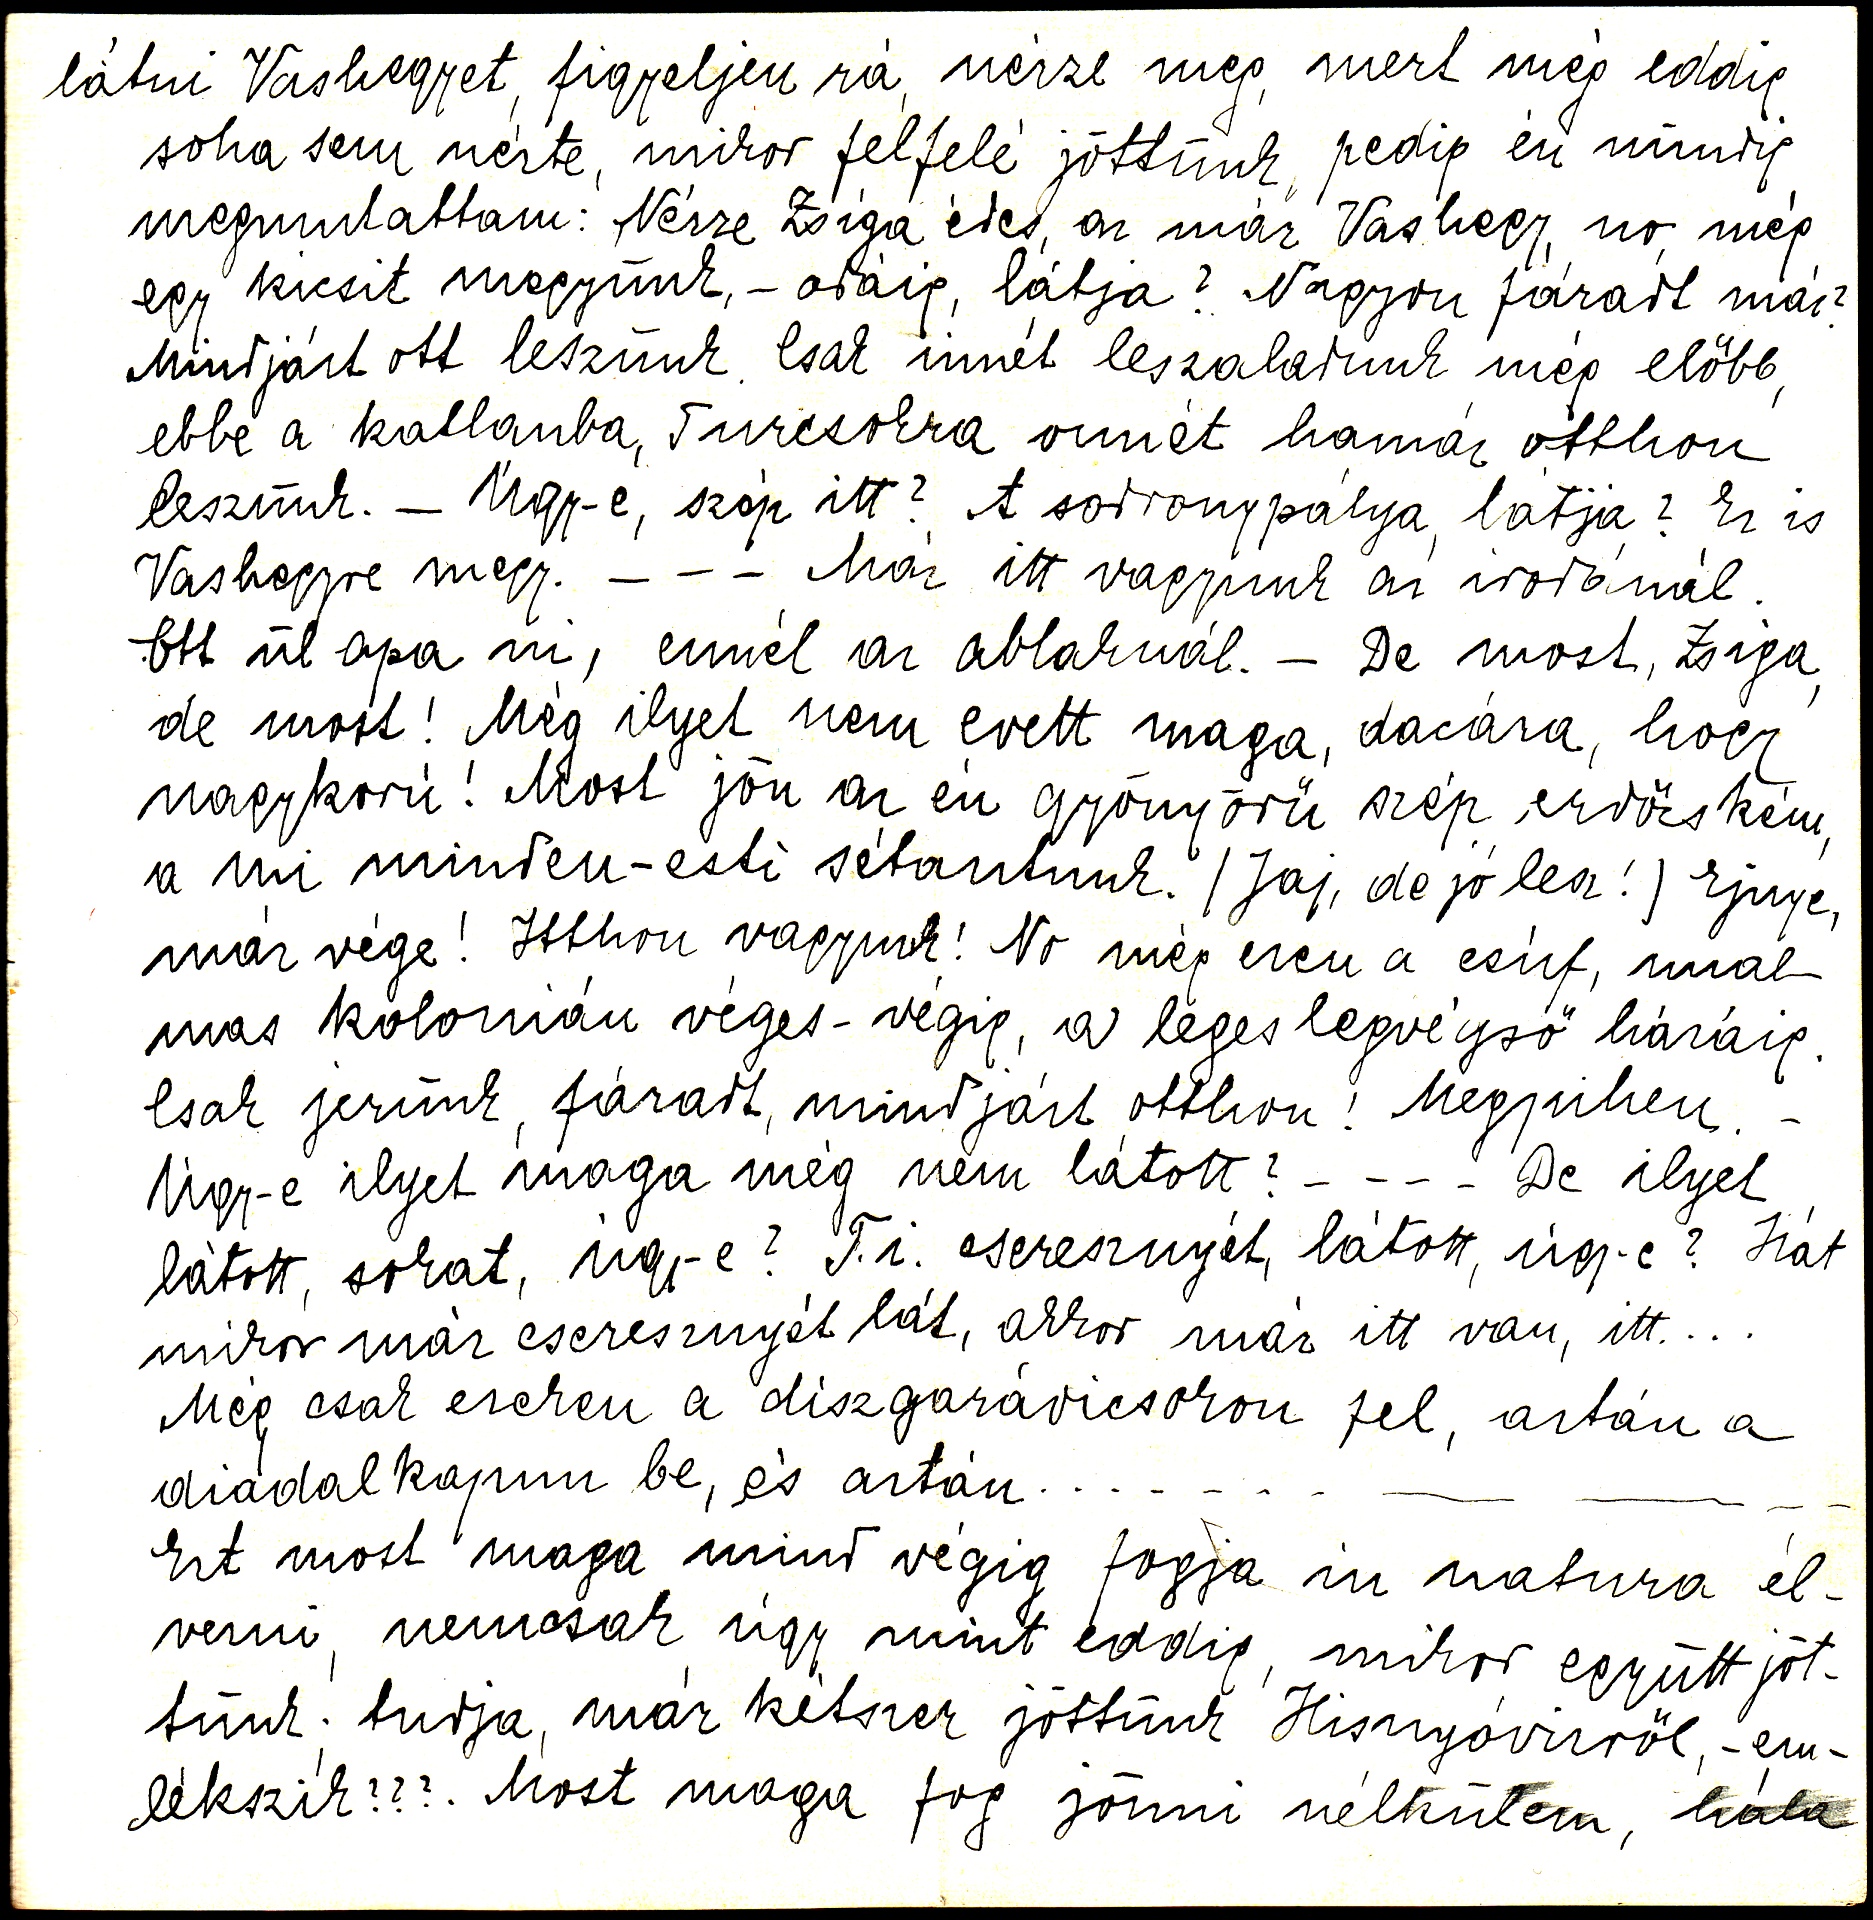 látni Vashegyet, figyeljen rá, nézze meg, mert még eddig
soha sem nézte, mikor felfelé jöttünk, pedig én mindig
megmutattam: Nézze Zsiga édes, az már Vashegy, no még
egy kicsit megyünk, - odáig, látja? Nagyon fáradt már?
Mindjárt ott leszünk. Csak innét leszaladunk még előbb,
ebbe a katlanba, Turcsokra onnét hamar otthon
leszünk. — Úgy-e, szép itt? A sodronypálya, látja? Ez is
Vashegyre megy. – – – Már itt vagyunk az irodánál.
Ott ül apa ni, ennél az ablaknál. – De most, Zsiga,
de most! Még ilyet nem evett maga, dacára, hogy
nagykorú! Most jön az én gyönyörű szép erdőcském,
a mi minden-esti sétautunk. (Jaj, de jó lesz!) Ejnye,
már vége! Itthon vagyunk! No még ezen a csúf, unal-
mas kolonián véges-végig, a legeslegvégső házáig.
Csak jerünk, fáradt, mindjárt otthon! Megpihen. –
Úgy-e ilyet maga még nem látott? – – – – De ilyet
látott, sokat, úgy-e? T.i. cseresznyét, látott, úgy-e? Hát
mikor már cseresznyét lát, akkor már itt van, itt....
Még csak ezeken a díszgarádicsokon fel, aztán a
diadalkapun be, és aztán. . . . - - - - — — - -
Ezt most maga mind végig fogja in natura él-
vezni, nemcsak úgy mint eddig, mikor együtt jöt-
tünk; tudja, már kétszer jöttünk Hisnyóvizről, - em-
lékszik???. Most maga fog jönni nélkülem, hála